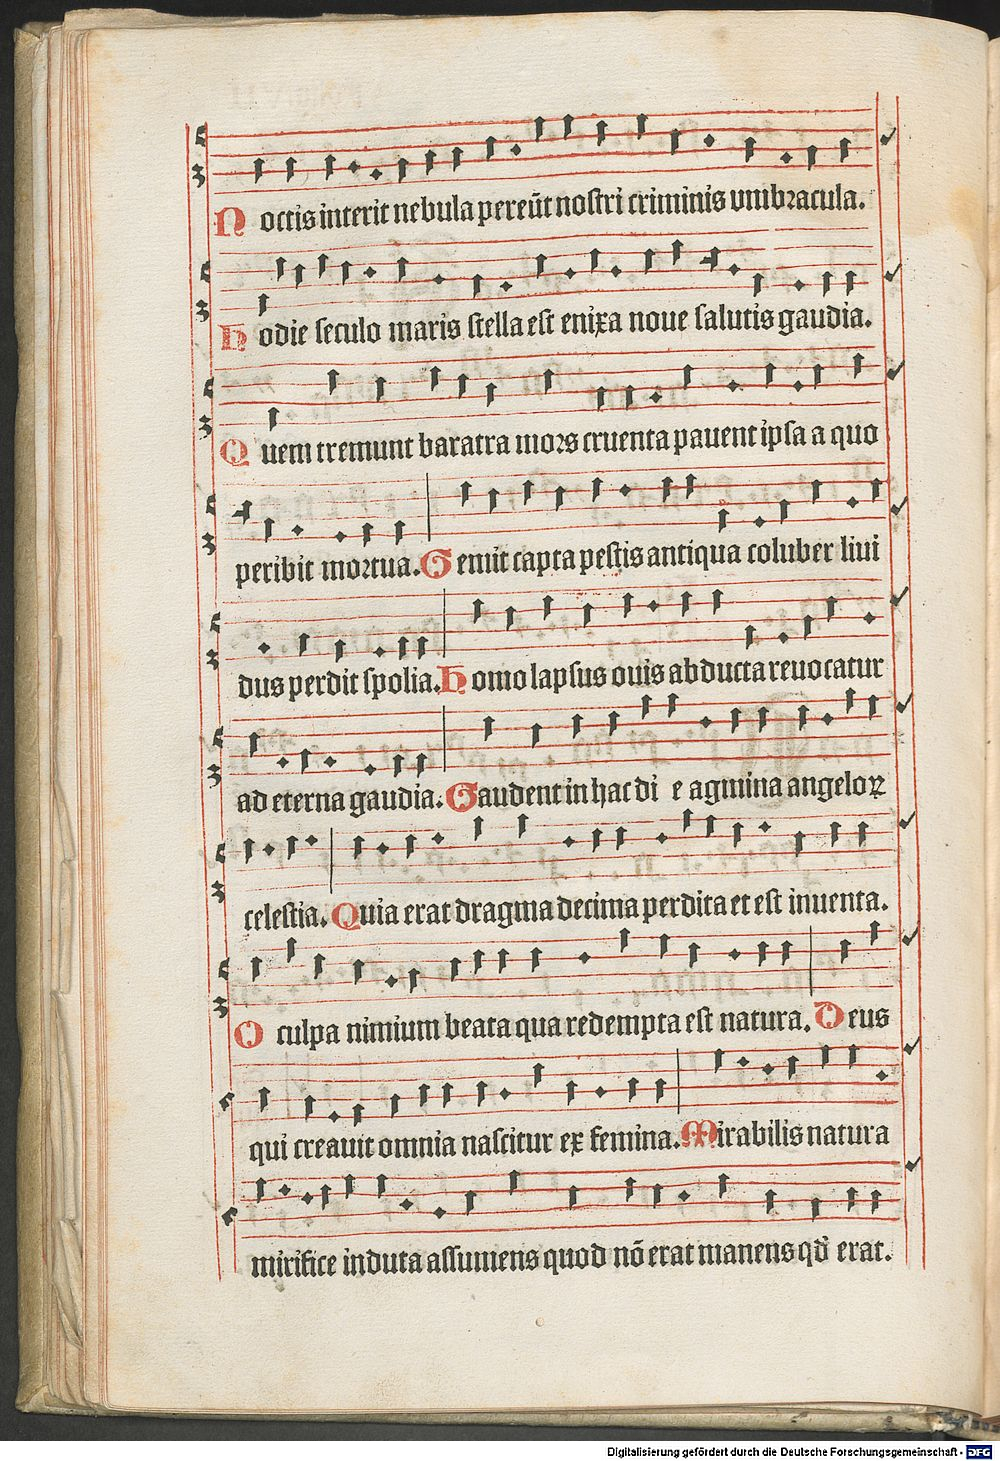 Noctis interit nebula pereūt nostri criminis vmbꝛacula.
Hodie seculo maris stella est enixa noue salutis gaudia.
Quem tremunt baratra moꝛs cruenta pauent ipsa a quo
peribit moꝛtua. Gemit capta pestis antiqua coluber liui
dus perdit spolia. Homo lapsus ouis abducta reuocatur
ad eterna gaudia. Gaudent in hac di e agmina angeloꝝ
celestia. Quia erat dragma decima perdita et est inuenta.
O culpa nimium beata qua redempta est natura. Deus
qui creauit omnia nascitur ex femina. Mirabilis natura
mirifice induta assumens quod nō erat manens qđ erat.
Digitalisierung gefördert durch die Deutsche Forschungsgemeinschaft - DFG